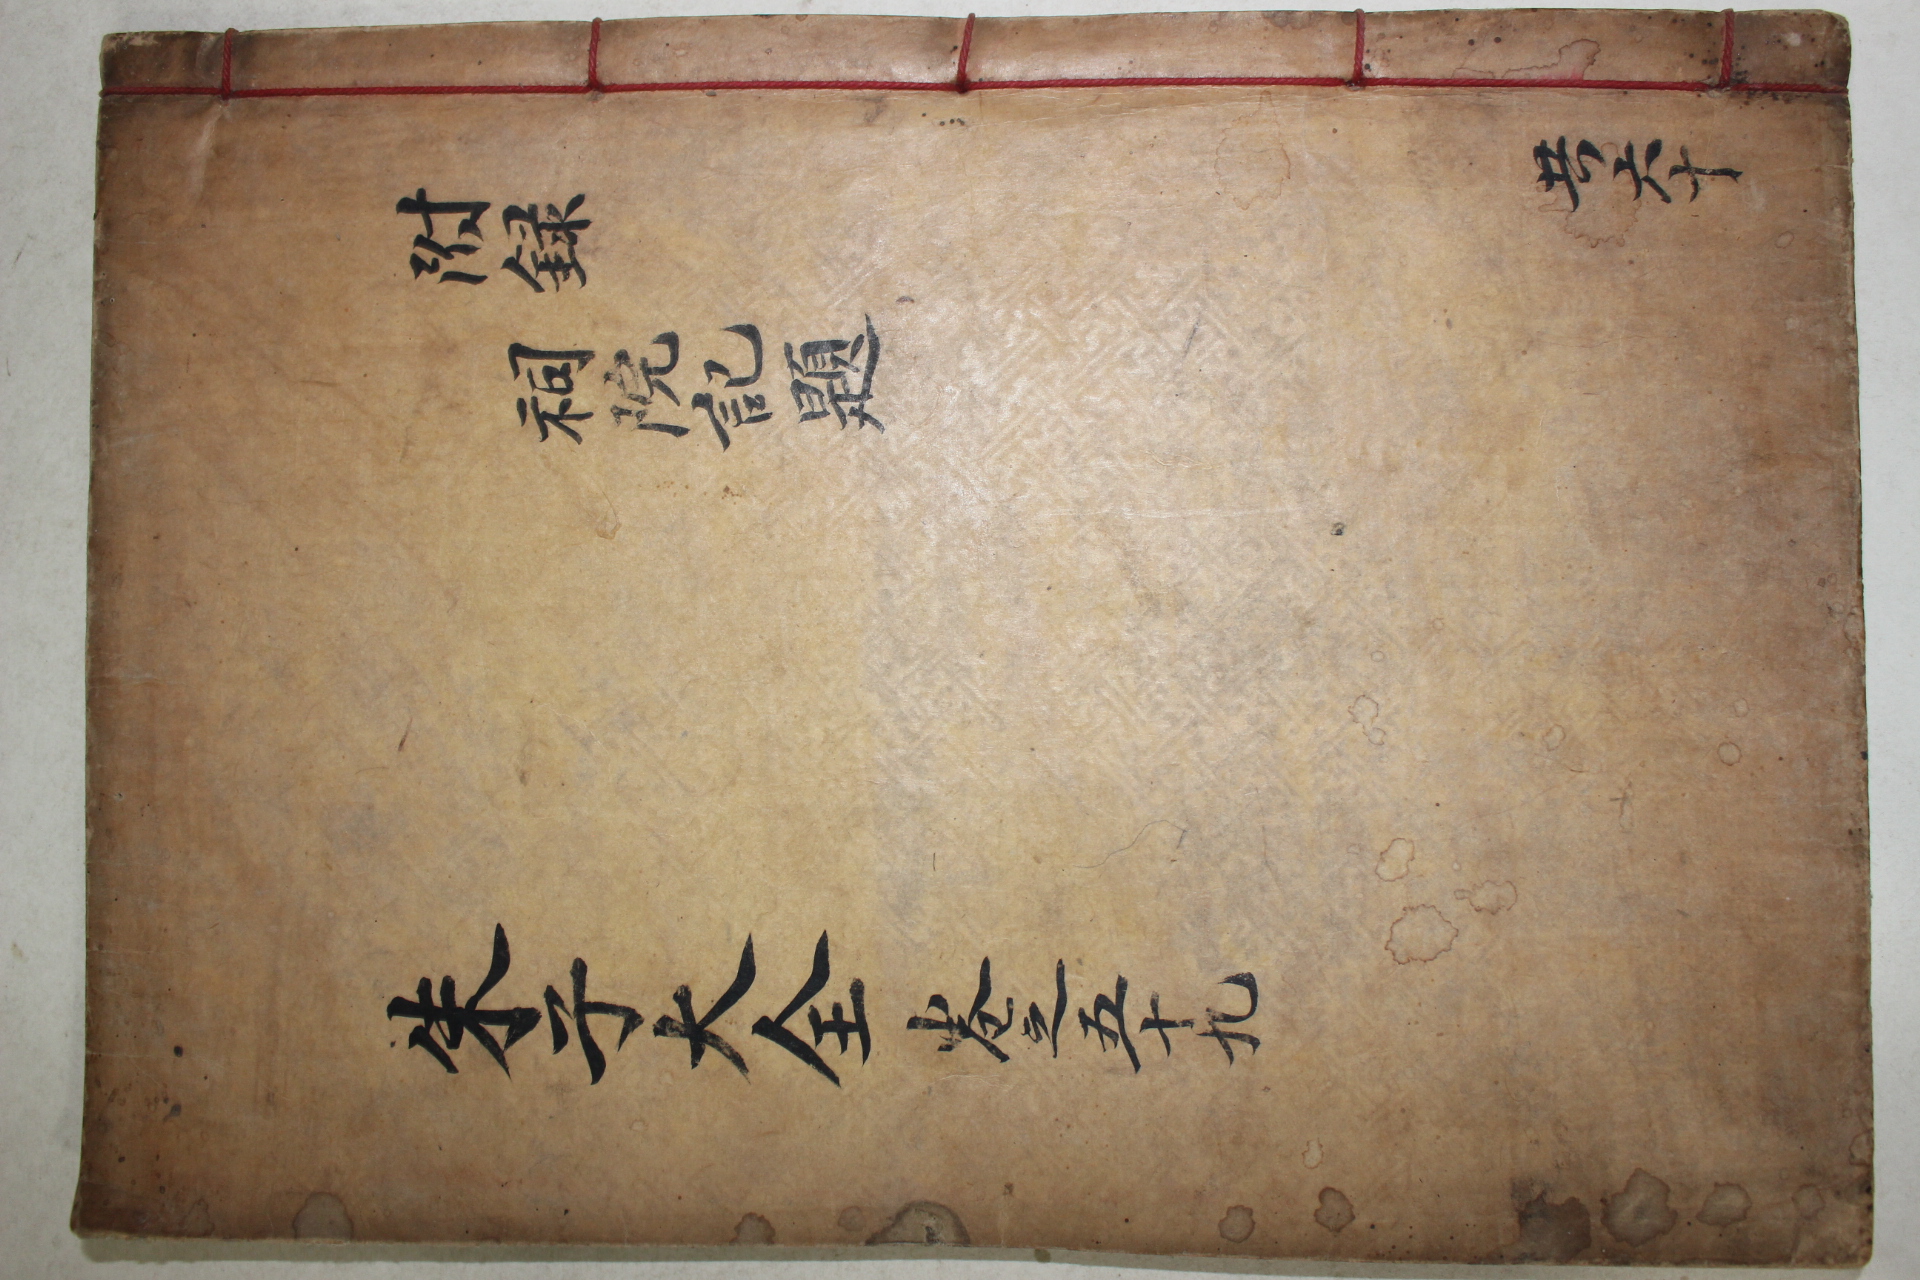 朱子大全 卷之五十九
附錄
祠院記題
共六十